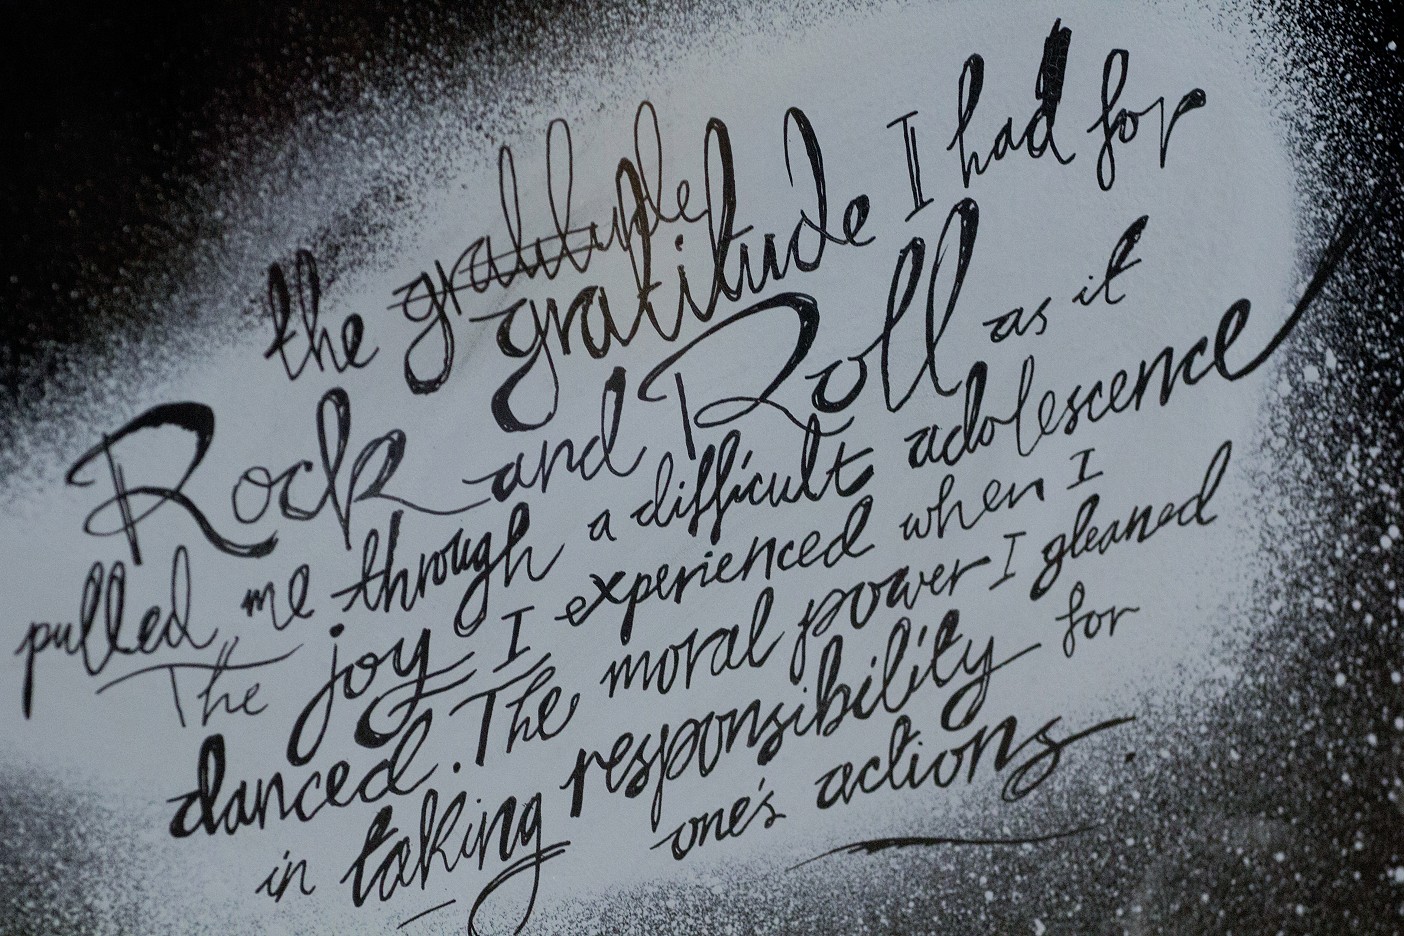 the gratitude gratitude I had for
Rock and Roll as it
pulled me through a difficult adolescence
The joy I experienced when I
danced. The moral power I gleaned
in taking responsibility for
one's actions.